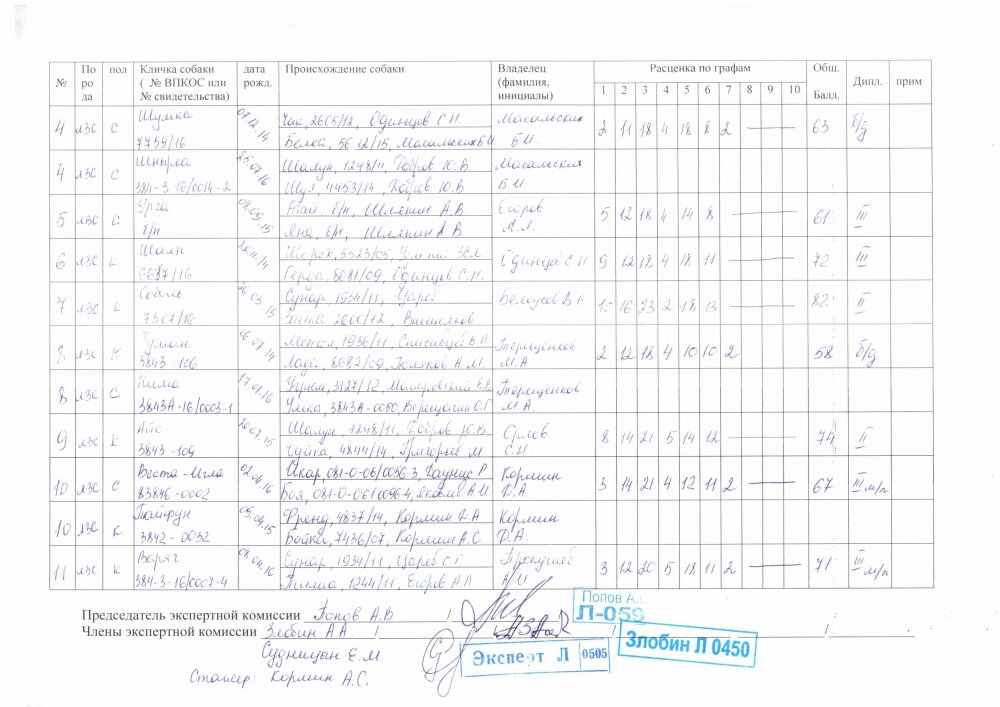 № По ро да пол Кличка собаки ( № ВПКОС или № свидетельства) дата рожд. Происхождение собаки Владелец (фамилия, инициалы) Расценка по графам 1 2 3 4 5 6 7 8 9 10 Общ. Балл. Дипл. прим
4 лзс с Шумка 07.12.14 Чак, 2605/12, Одинцов С.Н Масальских 2 11 18 4 18 8 2 63 б/д
7759/16 Белка, 5612/15, Масальских Б.И Б.И.
4 лзс с Шнырка 25.07.16 Шалун, 1248/11, Бобров Ю.В. Масальских
384-3-16/0014-2 4453/14, Бобров Ю.В. Б И
5 лзс с Урга 08.09.15 Атай, б/н, Шляпин А.В. Егоров 5 12 18 4 14 8 61 III
б/н Яна, б/н, Шляпин А В
6 лзс к 20.11.14 Одинцов С Н 9 12 18 4 18 11 72 III
6617/16 Герда, 8681/09, Одинцов С.Н.
7 лзс к Соболь 26 03 15 Сунар, 1934/11, Белоусов 16 23 2 18 13 82 II
2600/12,
8 лзс к Туман 06.07.14 1936/11, Терещенков 2 12 18 4 10 10 2 58 б/д
3843-106 Лада, 8682/09, Поляков А.М. М.А
8 лзс с Кима 17.01.16 Угрюм, 3127/12, Терещенков
3843А-16/0003-1 Умка, 3843А-0050, Верещагин С.Г М А.
9 лзс к Ай 20.07.15 Шалун, 1248/11, Бобров Ю.В. Орлов 8 14 21 5 14 12 74 II
3843-109 Чуйка, 4844/14, Григорьев М. С.Н.
10 лзс с Веста-Игла 02.04.16 Икар, 081-0-06/0056-3, Даунис Р Кормин 3 14 21 4 12 11 2 67 III м/п
83846-0002 Боя, 081-0-06/0096-4, Яковлев А.И Д.А
10 лзс к Тайфун 09.04.15 Френд, 4837/14, Кормин Д.А Кормин
3842-0032 Бойка, 7436/07, Кормин А.С Д.А
11 лзс к Варяг 08.04.16 Сунар, 1934/11, Царев С.Г 3 12 20 5 18 11 2 71 III м/п
384-3-16/0007-4 1244/11, Егоров А Л
Председатель экспертной комиссии Попов А.В. /
Попов А.В
Л-059
Члены экспертной комиссии Злобин А.А. / / /
Злобин Л 0450
Судницын Е.М.
Эксперт Л 0505
Стажер: Кормин А.С.